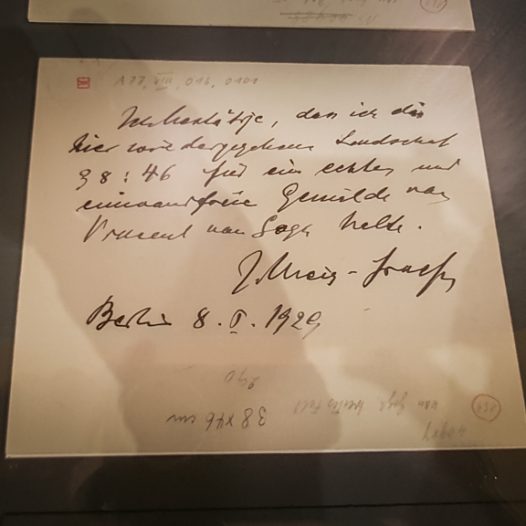 A 77, VIII, 016, 0101
Ich bestätige, dass ich die
hier wiedergegebene Landschaft
38 : 46 für ein echtes und
einwandfreie Gemälde van
Vincent van Gogh halte.
J. Meier-Graefe
Berlin 8. I. 1929
38 x 46 cm